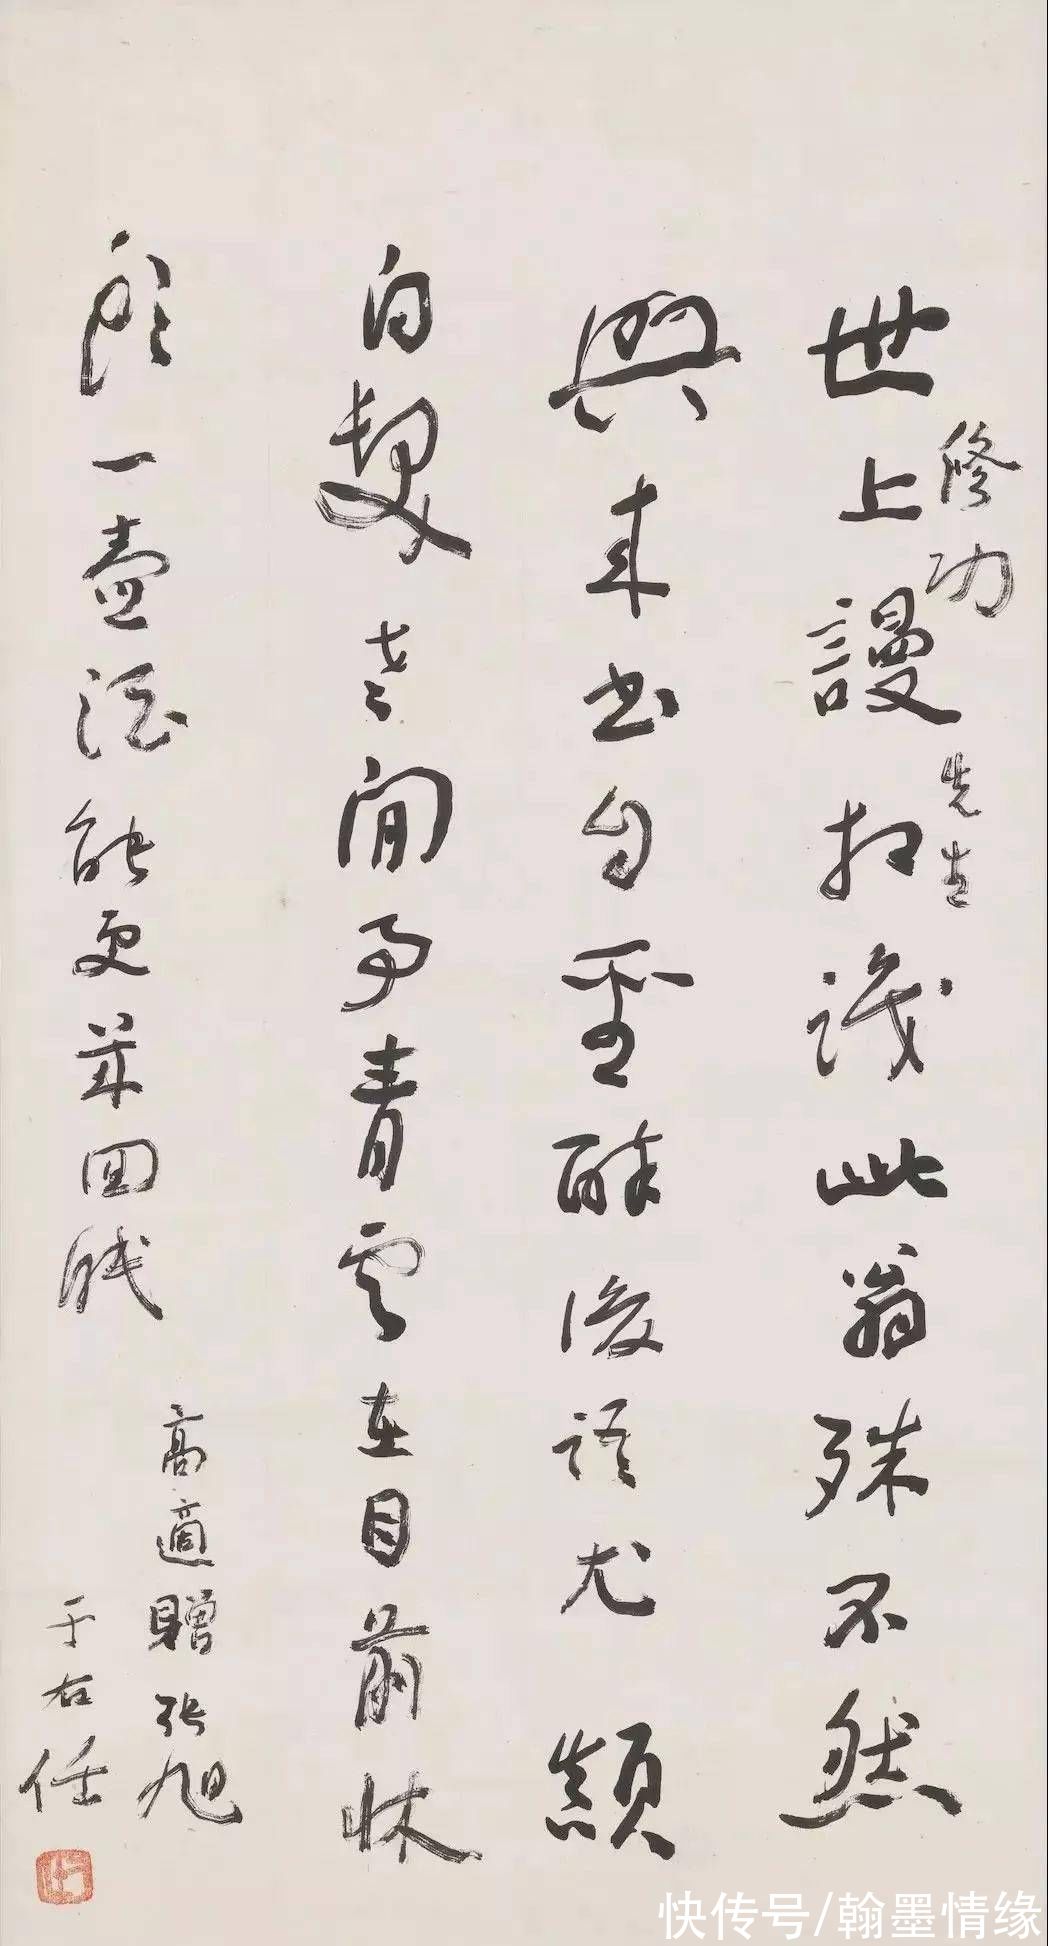 修功先生
世上謾相識此翁殊不然
興來書自聖醉後語尤顛
白髮老閒事青雲在目前牀
頭一壺酒能更幾回眠
高適贈張旭
于右任
快传号/翰墨情缘